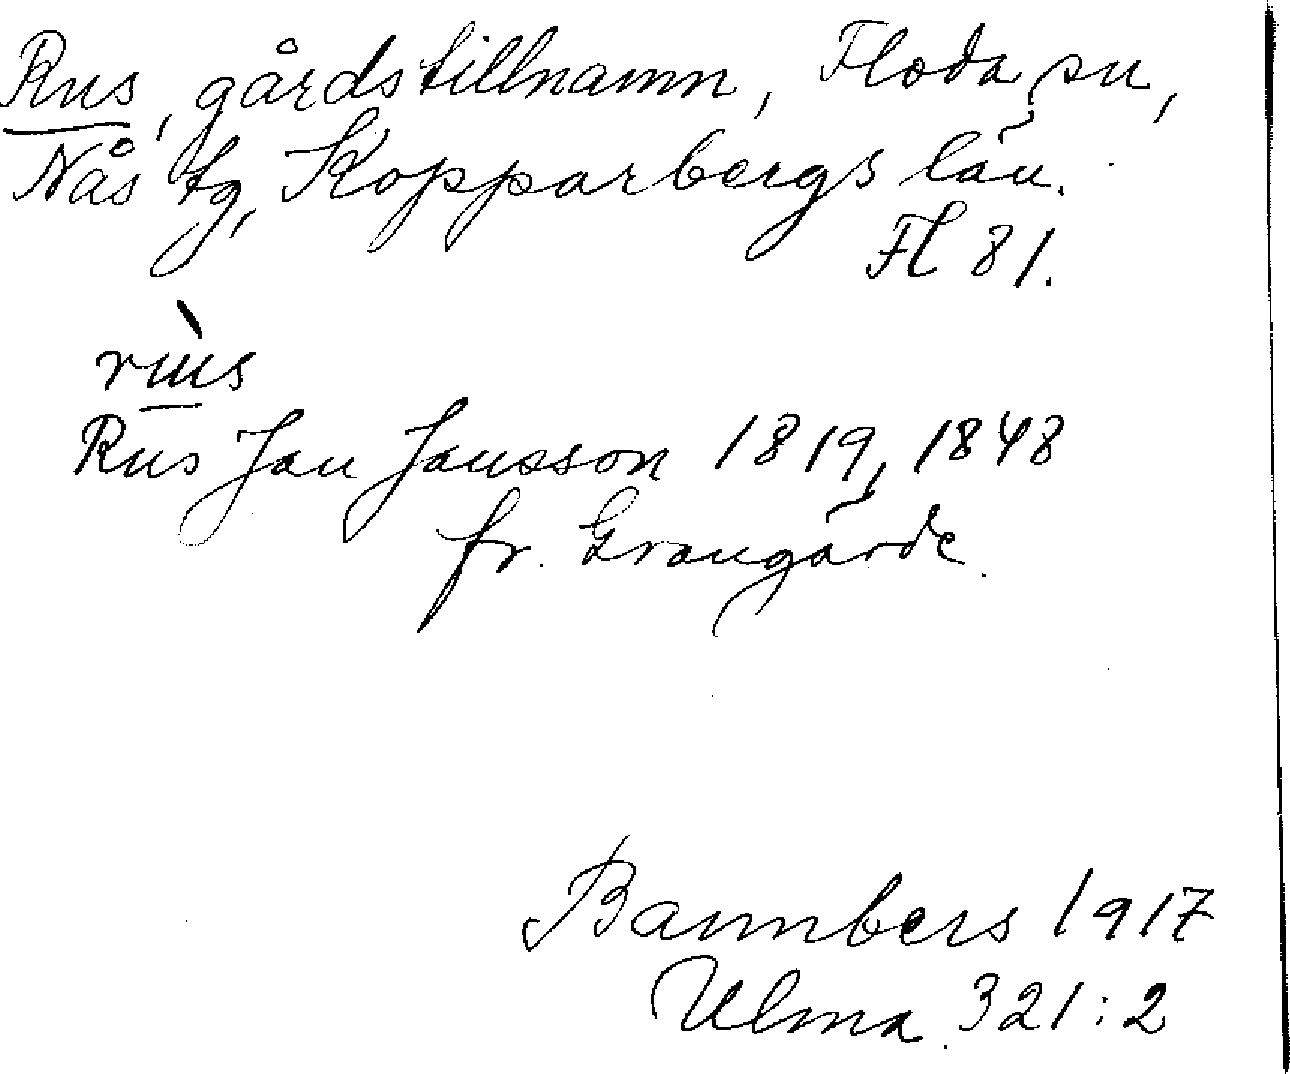 Rus, gårdstillnamn, Floda sn,
Nås tg, Kopparbergs län.
Fl 81.
Rus Jan Jansson 1819, 1848
fr. Grangärde.
Bannbers 1917
Ulma 321:2